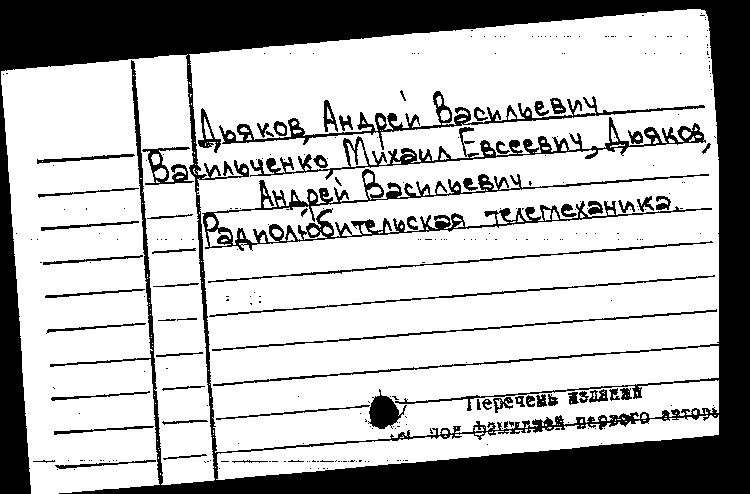 Дьяков, Андрей Васильевич.
Васильченко, Михаил Евсеевич, Дьяков,
Андрей Васильевич.
Радиолюбительская телемеханика.
Перечень изданий
под фамилией первого автора